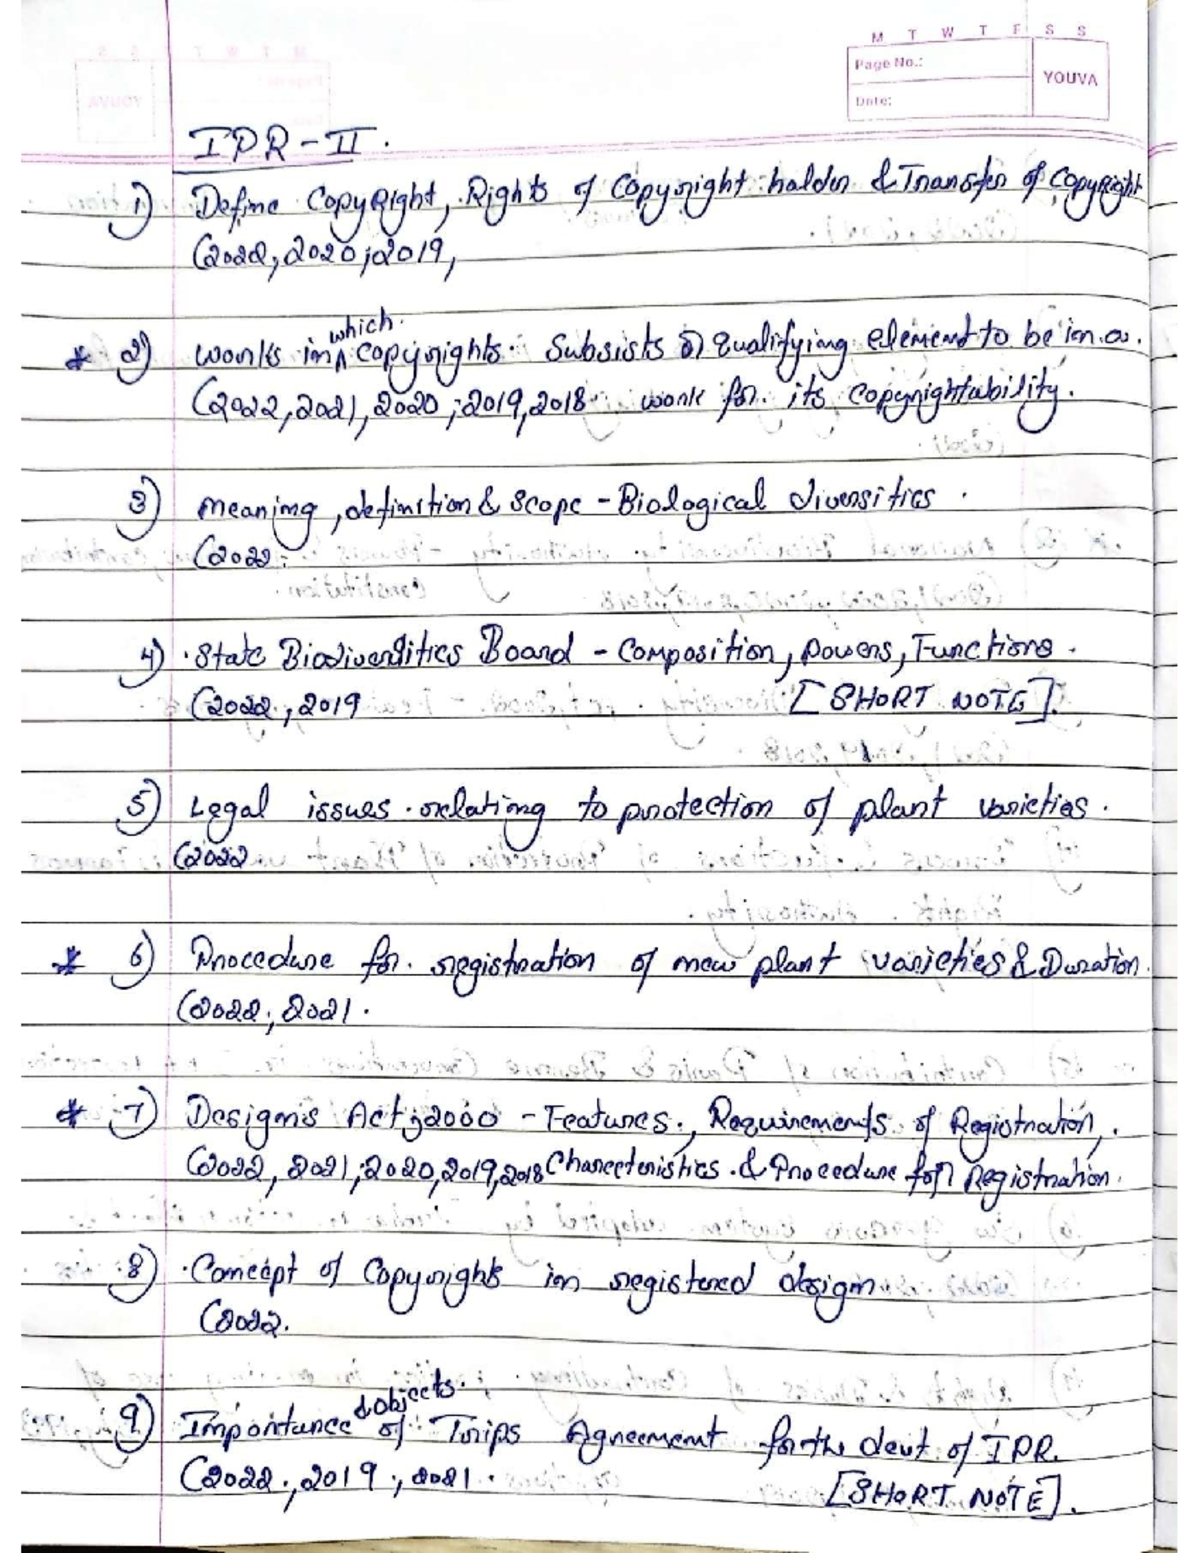 M T W T F S S
Page No.:
YOUVA
Date:
IPR-II.
1) Define CopyRight, Rights of Copyright holder & Transfer of CopyRight
(2022, 2020, 2019,
* 2) works in which copyrights subsists & Qualifying element to be in a
(2022, 2021, 2020, 2019, 2018 work for its copyrightability.
3) Meaning, definition & Scope - Biological diversities.
(2022.
4) State Biodiversities Board - Composition, Powers, Functions.
(2022, 2019 [SHORT NOTE].
5) Legal issues relating to protection of plant varieties.
(2022
* 6) Procedure for registration of new plant varieties & Duration.
(2022, 2021.
* 7) Designs Act, 2000 - Features, Requirements of Registration,
(2022, 2021, 2020, 2019, 2018 Charecteristics & Procedure for Registration.
8) Concept of Copyrights in registered design
(2022.
9) Importance & objects of Trips Agreement for the devt of IPR.
(2022, 2019, 2021. [SHORT NOTE].